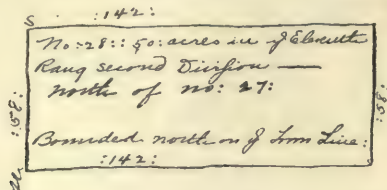 S :142:
No: 28:: 50: acres in ye Eleventh
Rang second Division —
north of no: 27:
:58:
:58:
Bounded north on ye Town Line:
:142: